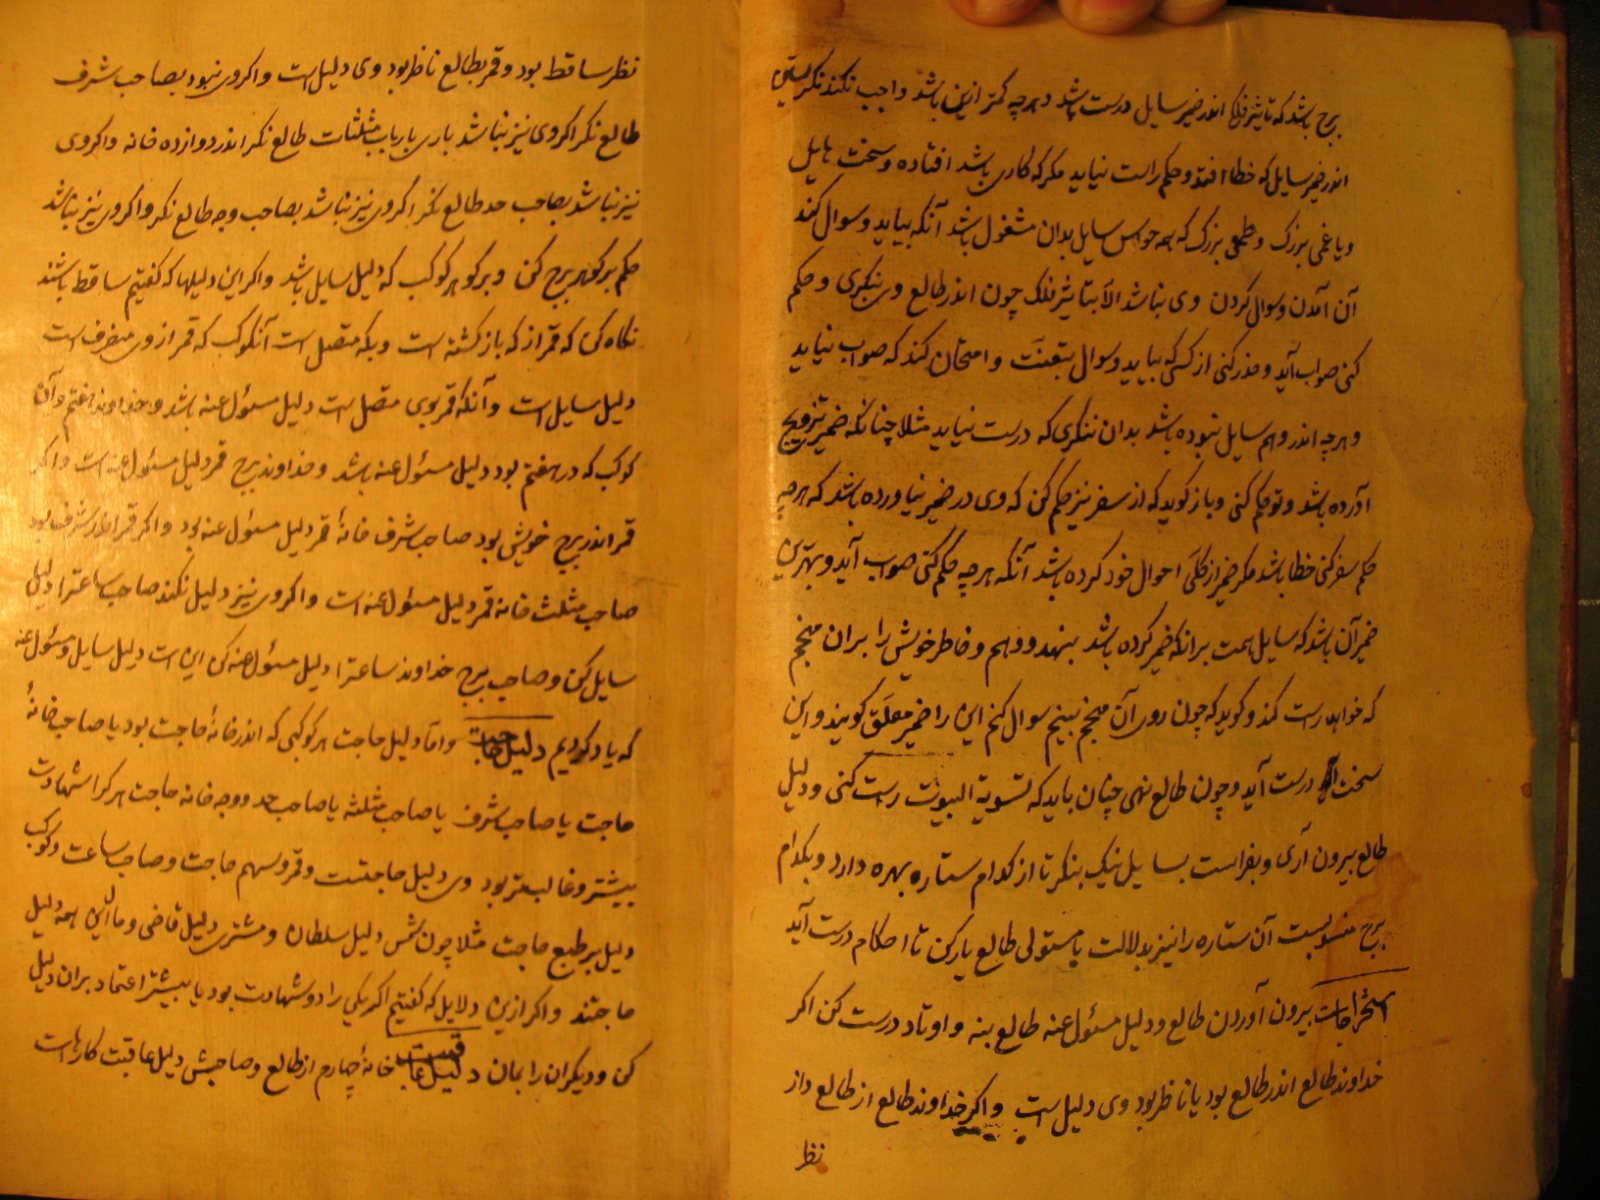 برج باشد که تاثیر فلک اندر ضمیر سایل درست باشد و هرچه کمتر ازین باشد واجب نکند نکریستن
اندر ضمیر سایل که خطا افتد و حکم راست نیاید مکر که کاری باشد افتاده و سخت هایل
و یا غمی بزرک و طمعی بزرک که همه حواس سایل بدان مشغول باشد آنکه بیاید و سوال کند
آن آمدن و سوال کردن وی نباشد الا بتاثیر فلک چون اندر طالع وی بنکری و حکم
کنی صواب آید و حذر کنی از کسی که بیاید و سوال بتعنت و امتحان کند که صواب نیاید
و هرچه اندر وهم سایل نبوده باشد بدان ننکری که درست نیاید مثلا چنانکه ضمیر تزویج
آورده باشد و تو حکم کنی و باز کوید که از سفر نیز حکم کن که وی در ضمیر نیاورده باشد که هرچه
حکم سفر کنی خطا باشد مکر ضمیر از کلی احوال خود کرده باشد آنکه هرچه حکم کنی صواب آید و بهترین
ضمیر آن باشد که سایل همت برانکه ضمیر کرده باشد بنهد و وهم و خاطر خویش را بران منجم
که خواهد راست کند و کوید که چون روی آن منجم بینم سوال کنم این را ضمیر معلق کویند و این
سخت درست آید و چون طالع نهی چنان باید که تسویة البیوت راست کنی و دلیل
طالع بیرون آری و بفراست بسایل نیک بنکر تا از کدام ستاره بهره دارد و بکدام
برج منسوبست آن ستاره را نیز بدلالت با مستولی طالع یار کن تا احکام درست آید
استخراجات بیرون آوردن طالع و دلیل مسئول عنه طالع بنه و اوتاد درست کن اکر
خداوند طالع اندر طالع بود یا ناظر بود وی دلیل است و اکر خداوند طالع از طالع و از
نظر
نظر ساقط بود و قمر بطالع ناظر بود وی دلیل است و اکر وی نبود بصاحب شرف
طالع نکر اکر وی نیز نباشد باری بارباب مثلثات طالع نکر اندر دوازده خانه و اکر وی
نیز نباشد بصاحب حد طالع نکر اکر وی نیز نباشد بصاحب وجه طالع نکر و اکر وی نیز نباشد
حکم بر کوهر برج کن و بر کوهر کوکب که دلیل سایل باشد و اکر این دلیلها که کفتیم ساقط باشند
نکاه کن که قمر از که باز کشته است و بکه متصل است آن کوکب که قمر از وی منصرف است
دلیل سایل است و آنکه قمر بوی متصل است دلیل مسئول عنه باشد و خداوند هفتم و آن
کوکب که در هفتم بود دلیل مسئول عنه باشد و خداوند برج قمر دلیل مسئول عنه است و اکر
قمر اندر برج خویش بود صاحب شرف خانهٔ قمر دلیل مسئول عنه بود و اکر قمر اندر شرف بود
صاحب مثلث خانه قمر دلیل مسئول عنه است و اکر وی نیز دلیل نکند صاحب ساعترا دلیل
سایل کن و صاحب برج خداوند ساعترا دلیل مسئول عنه کن این است دلیل سایل و مسئول عنه
که یاد کردیم دلیل حاجت و اما دلیل حاجت هر کوکبی که اندر خانهٔ حاجت بود یا صاحب خانهٔ
حاجت یا صاحب شرف یا صاحب مثلثه یا صاحب حد و وجه خانه حاجت هر کرا شهادت
بیشتر و غالب‌تر بود وی دلیل حاجتست و قمر و سهم حاجت و صاحب ساعت و کوکب
دلیل بر طبع حاجت مثلا چون شمس دلیل سلطان و مشتری دلیل قاضی و مال این همه دلیل
حاجتند و اکر ازین دلایل که کفتیم اکر یکی را دو شهادت بود یا بیشتر اعتماد بران دلیل
کن و دیکران را بمان دلیل عاقبت خانهٔ چهارم از طالع و صاحبش دلیل عاقبت کارهاست